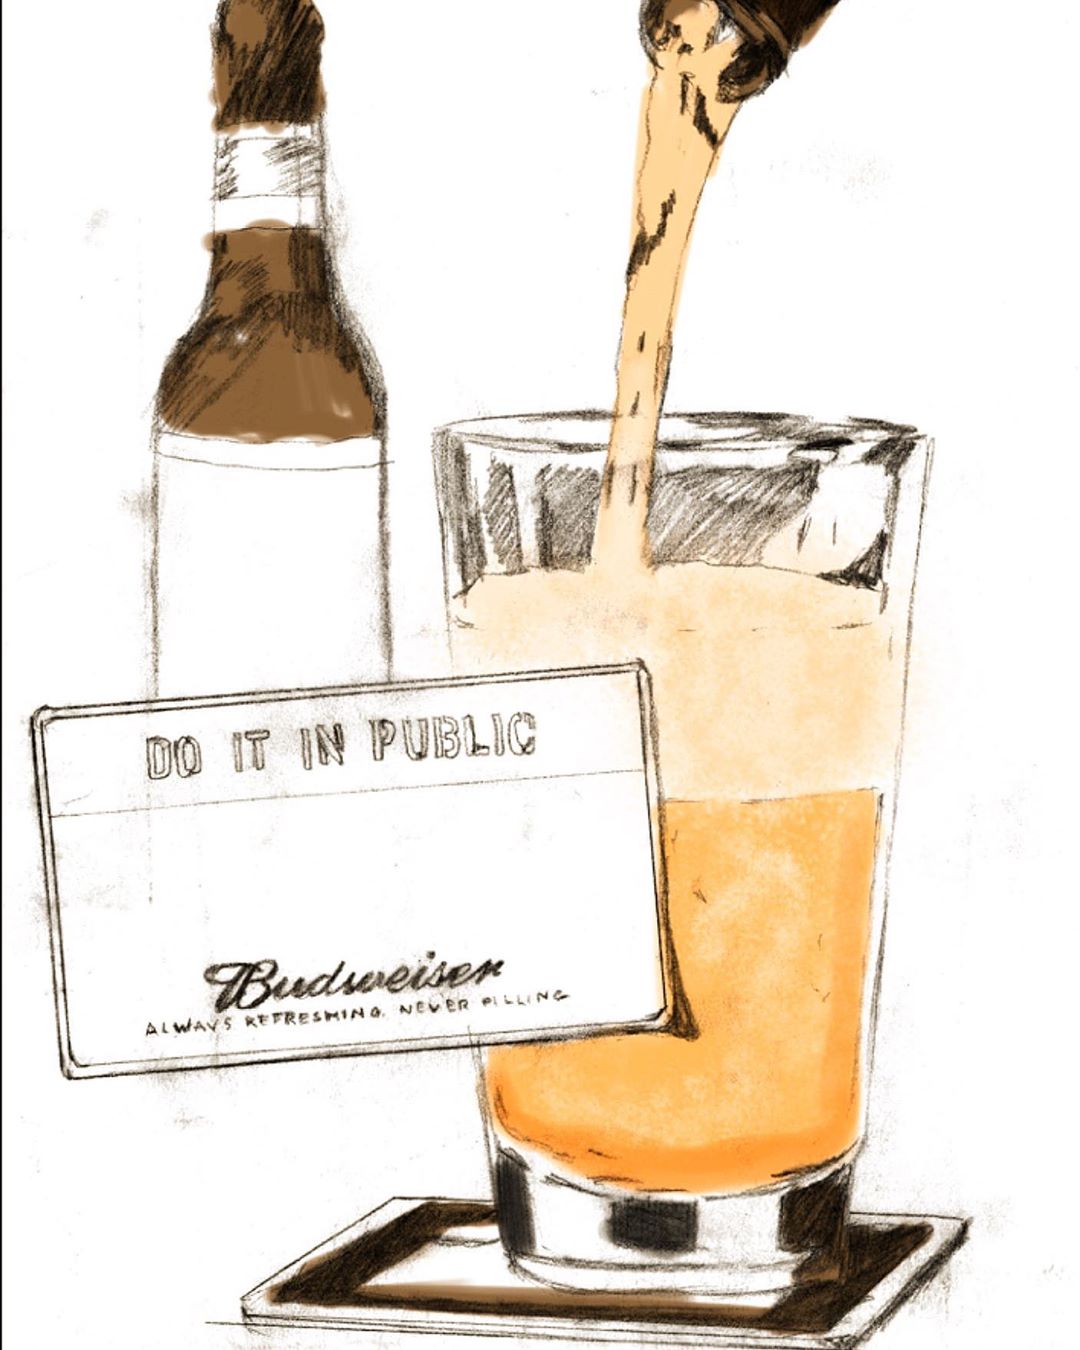 DO IT IN PUBLIC
Budweiser
ALWAYS REFRESHING. NEVER PILLING